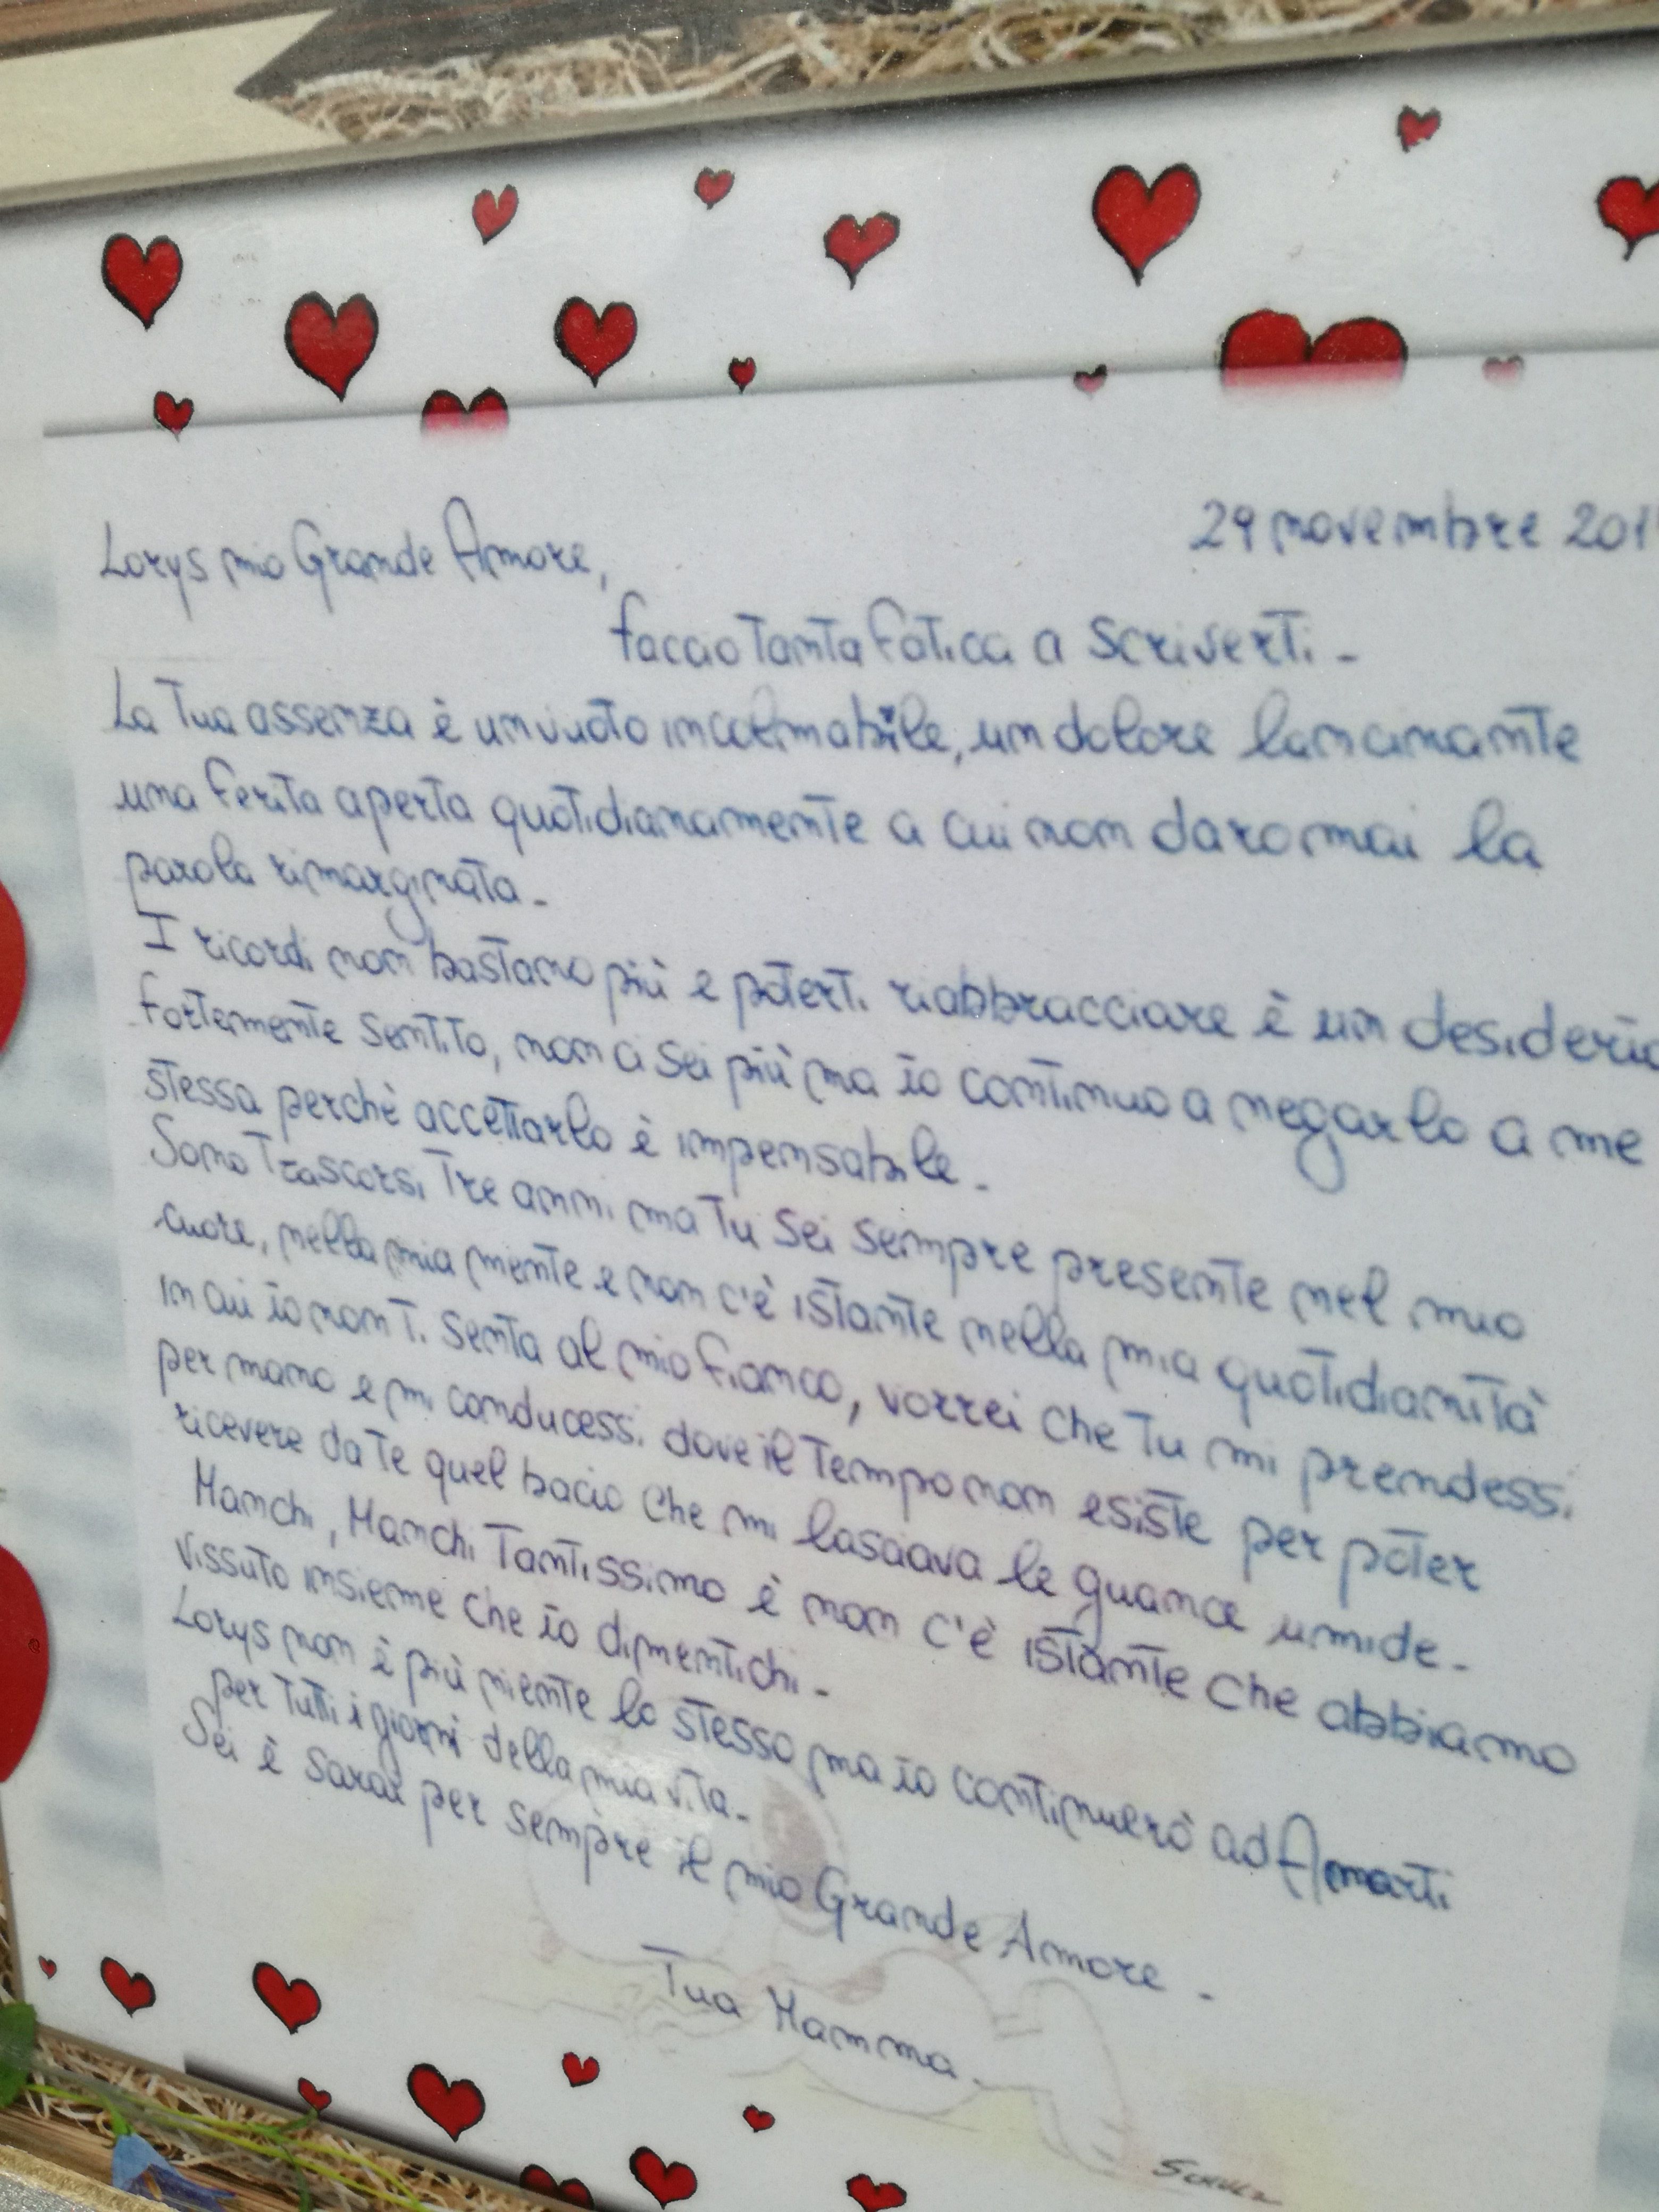 29 novembre 201
Lorys mio Grande Amore,
faccio tanta fatica a scriverti -
La tua assenza è un vuoto incolmabile, un dolore lancinante
una ferita aperta quotidianamente a cui non darò mai la
parola rimarginata -
I ricordi non bastano più e poterti riabbracciare è un desiderio
fortemente sentito, non ci sei più ma io continuo a negarlo a me
stessa perchè accettarlo è impensabile -
Sono trascorsi tre anni ma tu sei sempre presente nel mio
cuore, nella mia mente e non c'è istante nella mia quotidianità
in cui io non ti senta al mio fianco, vorrei che tu mi prendessi
per mano e mi conducessi dove il tempo non esiste per poter
ricevere da te quel bacio che mi lasciava le guance umide -
Manchi, Manchi tantissimo è non c'è istante che abbiamo
vissuto insieme che io dimentichi -
Lorys non è più niente lo stesso ma io continuerò ad Amarti
per tutti i giorni della mia vita -
Sei è sarai per sempre il mio Grande Amore -
Tua Mamma -
Schulz